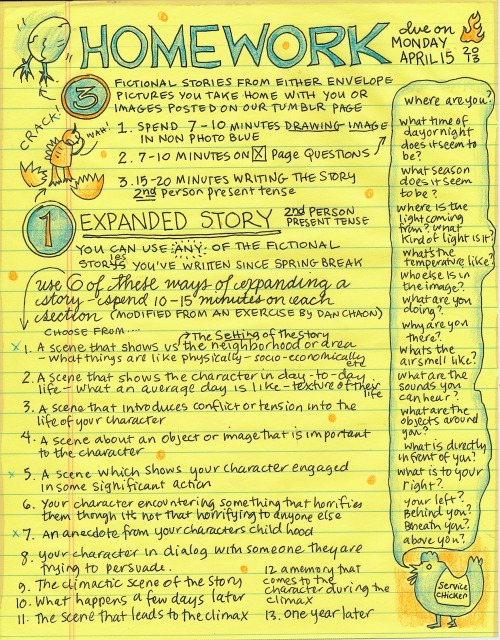 HOMEWORK
due on
MONDAY
APRIL 15 2013
3
FICTIONAL STORIES FROM EITHER ENVELOPE
PICTURES YOU TAKE HOME WITH YOU OR
IMAGES POSTED ON OUR TUMBLR PAGE
CRACK!
WAH!
1. SPEND 7-10 MINUTES DRAWING IMAGE
IN NON PHOTO BLUE
2. 7-10 MINUTES ON X Page QUESTIONS
3. 15-20 MINUTES WRITING THE STORY
2nd person present tense
1
EXPANDED STORY
2nd PERSON
PRESENT TENSE
YOU CAN USE ANY OF THE FICTIONAL
STORIES YOU'VE WRITTEN SINCE SPRING BREAK
use 6 of these ways of expanding a
story - spend 10-15 minutes on each
section (MODIFIED FROM AN EXERCISE BY DAN CHAON)
CHOOSE FROM....
The Setting of the story
x 1. A scene that shows us the neighborhood or area
- what things are like physically - socio-economically etc
2. A scene that shows the character in day-to-day
life - what an average day is like - texture of their life
3. A scene that introduces conflict or tension into the
life of your character
4. A scene about an object or image that is important
to the character
x 5. A scene which shows your character engaged
in some significant action
6. Your character encountering something that horrifies
them though it's not that horrifying to anyone else
x 7. An anecdote from your characters child hood
8. your character in dialog with someone they are
trying to persuade.
9. The climactic scene of the story
10. What happens a few days later
11. The scene that leads to the climax
12 a memory that
comes to the
character during the
climax
13. one year later
where are you?
what time of
day or night
does it seem to
be?
what season
does it seem
to be?
where is the
light coming
from? what
kind of light is it?
what's the
temperature like?
who else is in
the image?
what are you
doing?
why are you
there?
whats the
air smell like?
what are the
sounds you
can hear?
what are the
objects around
you?
what is directly
in front of you?
what is to your
right?
your left?
Behind you?
Beneath you?
above you?
SERVICE
CHICKEN